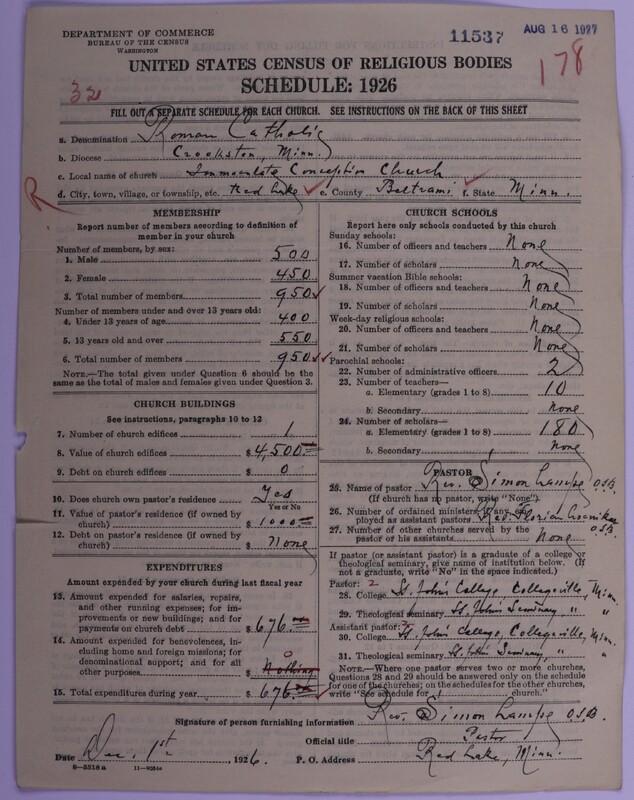 DEPARTMENT OF COMMERCE
BUREAU OF THE CENSUS
WASHINGTON
11537
AUG 16 1927
178
UNITED STATES CENSUS OF RELIGIOUS BODIES
SCHEDULE: 1926
32
FILL OUT A SEPARATE SCHEDULE FOR EACH CHURCH. SEE INSTRUCTIONS ON THE BACK OF THIS SHEET
a. Denomination Roman Catholic
b. Diocese Crookston, Minn.
c. Local name of church Immaculate Conception Church
d. City, town, village, or township, etc. Red Lake e. County Beltrami f. State Minn.
R
MEMBERSHIP
Report number of members according to definition of
member in your church
Number of members, by sex:
1. Male 500
2. Female 450
3. Total number of members 950
Number of members under and over 13 years old:
4. Under 13 years of age 400
5. 13 years old and over 550
6. Total number of members 950
NOTE.—The total given under Question 6 should be the
same as the total of males and females given under Question 3.
CHURCH BUILDINGS
See instructions, paragraphs 10 to 12
7. Number of church edifices 1
8. Value of church edifices $ 4,500
9. Debt on church edifices $ 0
10. Does church own pastor's residence Yes
Yes or No
11. Value of pastor's residence (if owned by
church) $ 1000
12. Debt on pastor's residence (if owned by
church) $ none
EXPENDITURES
Amount expended by your church during last fiscal year
13. Amount expended for salaries, repairs,
and other running expenses; for im-
provements or new buildings; and for
payments on church debt $ 676
14. Amount expended for benevolences, in-
cluding home and foreign missions; for
denominational support; and for all
other purposes $ Nothing
0
15. Total expenditures during year $ 676
CHURCH SCHOOLS
Report here only schools conducted by this church
Sunday schools:
16. Number of officers and teachers None
17. Number of scholars None
Summer vacation Bible schools:
18. Number of officers and teachers None
19. Number of scholars None
Week-day religious schools:
20. Number of officers and teachers None
21. Number of scholars None
Parochial schools:
22. Number of administrative officers 2
23. Number of teachers—
a. Elementary (grades 1 to 8) 10
b. Secondary None
24. Number of scholars—
a. Elementary (grades 1 to 8) 180
b. Secondary None
PASTOR
25. Name of pastor Rev. Simon Lampe O.S.B.
(If church has no pastor, write "None").
26. Number of ordained ministers, if any, em-
ployed as assistant pastors Rev. Florian Locnikar O.S.B.
27. Number of other churches served by the
pastor or his assistants None
If pastor (or assistant pastor) is a graduate of a college or
theological seminary, give name of institution below. (If
not a graduate, write "No" in the space indicated.)
Pastor: 2
28. College St. John's College Collegeville, Minn.
29. Theological seminary St. John's Seminary " "
Assistant pastor:
30. College St. John's College, Collegeville, Minn.
31. Theological seminary St. John's Seminary, " "
NOTE.—Where one pastor serves two or more churches,
Questions 28 and 29 should be answered only on the schedule
for one of the churches; on the schedules for the other churches,
write "See schedule for church."
Signature of person furnishing information Rev. Simon Lampe O.S.B.
Official title Pastor
Date Dec. 1st, 1926. P. O. Address Red Lake, Minn.
8—5518 a